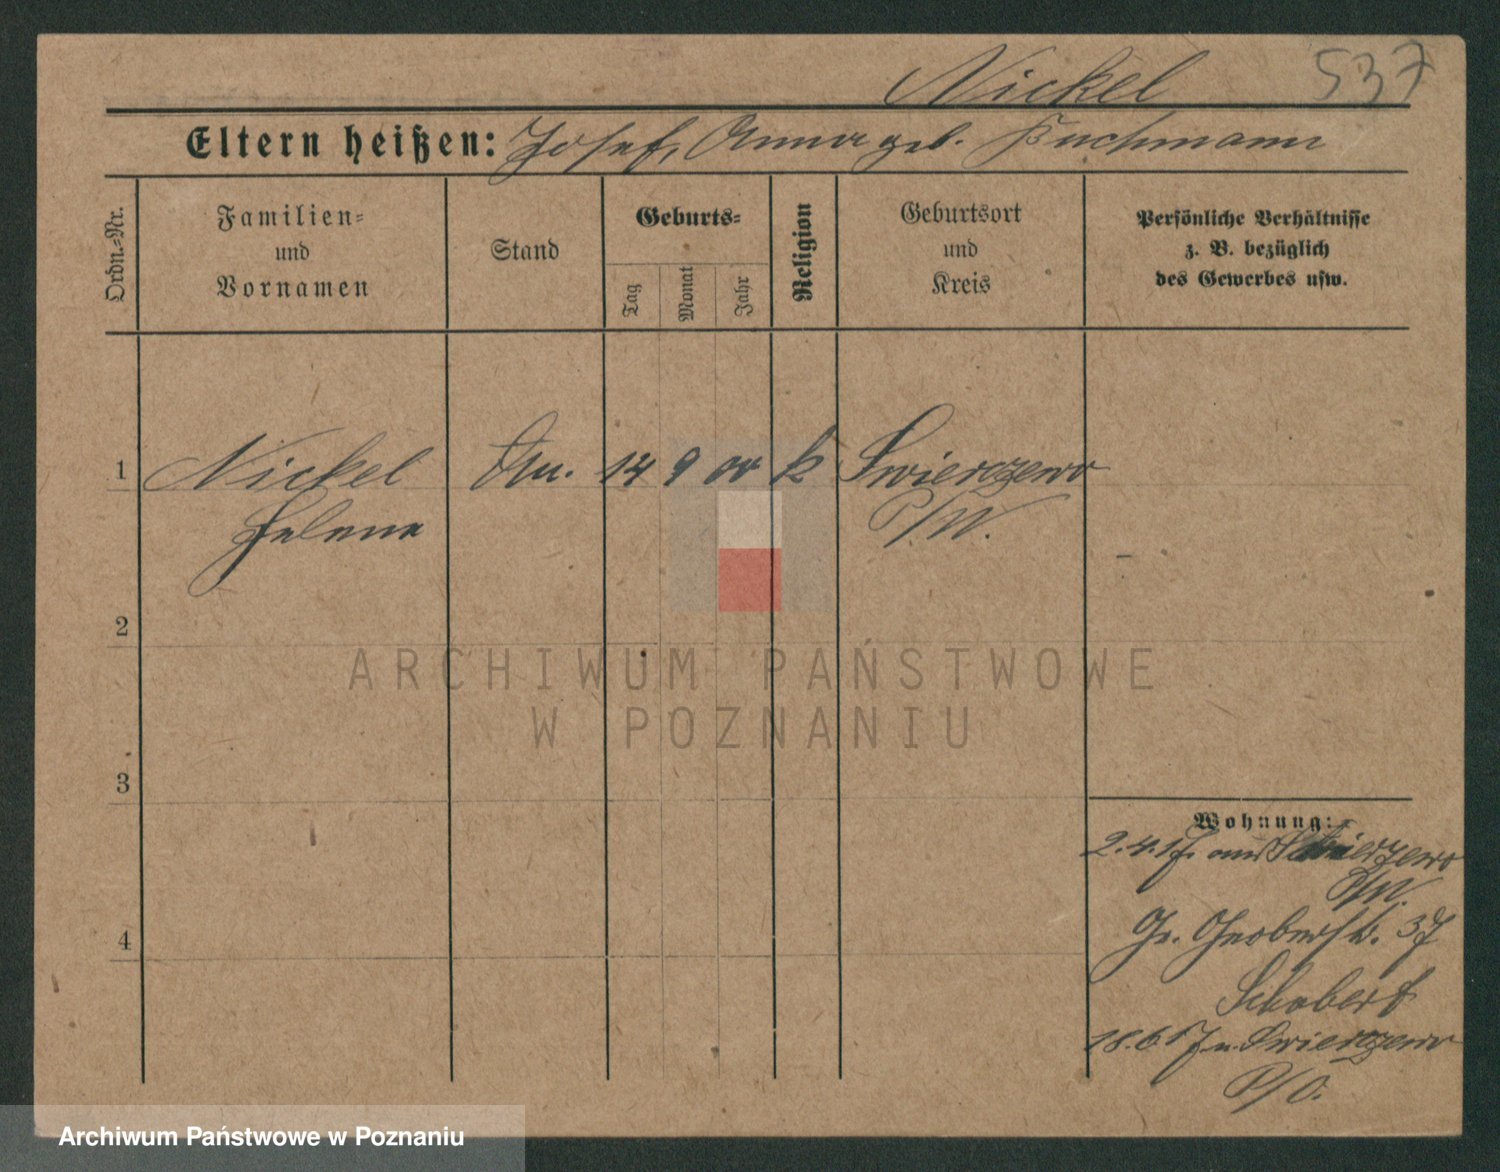 Nickel 537
Eltern heißen: Josef, Anna geb. Buchmann
Ordn.-Nr.
Familien- und Vornamen
Stand
Geburts-
Tag
Monat
Jahr
Religion
Geburtsort und Kreis
Persönliche Verhältnisse
z. B. bezüglich
des Gewerbes usw.
1 Nickel 14 9 00 k Swierczewo
Helene P/W.
2
3
4
Wohnung:
2.4.17. aus Swierczewo
P/W.
Gr. 37
Schobert
18.6.17 n. Swierczewo
P/O.
ARCHIWUM PAŃSTWOWE
W POZNANIU
Archiwum Państwowe w Poznaniu